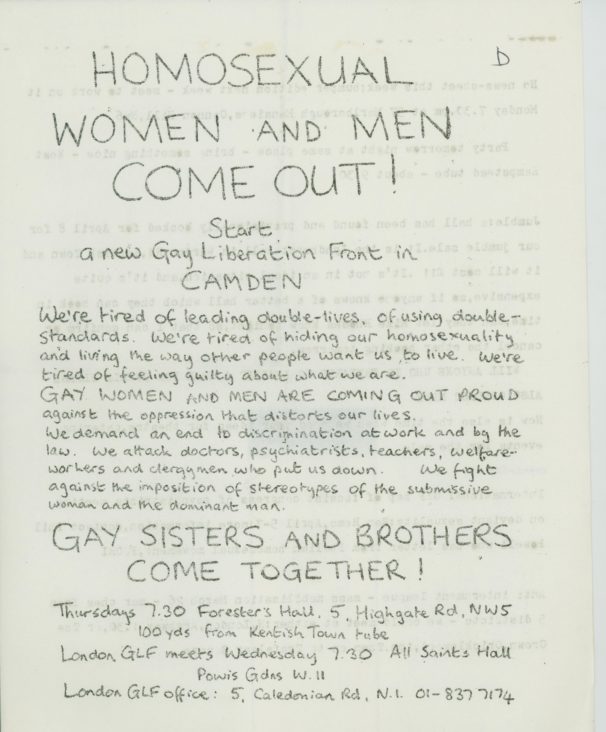 D
HOMOSEXUAL
WOMEN AND MEN
COME OUT!
Start
a new Gay Liberation Front in
CAMDEN
We're tired of leading double-lives, of using double-
standards. We're tired of hiding our homosexuality
and living the way other people want us to live. We're
tired of feeling guilty about what we are.
GAY WOMEN AND MEN ARE COMING OUT PROUD
against the oppression that distorts our lives.
We demand an end to discrimination at work and by the
law. We attack doctors, psychiatrists, teachers, welfare-
workers and clergymen who put us down. We fight
against the imposition of stereotypes of the submissive
woman and the dominant man.
GAY SISTERS AND BROTHERS
COME TOGETHER!
Thursdays 7.30 Forester's Hall, 5, Highgate Rd, NW5
100yds from Kentish Town tube
London GLF meets Wednesday 7.30 All Saints Hall
Powis Gdns W.11
London GLF office: 5, Caledonian Rd, N.1. 01-837 7174